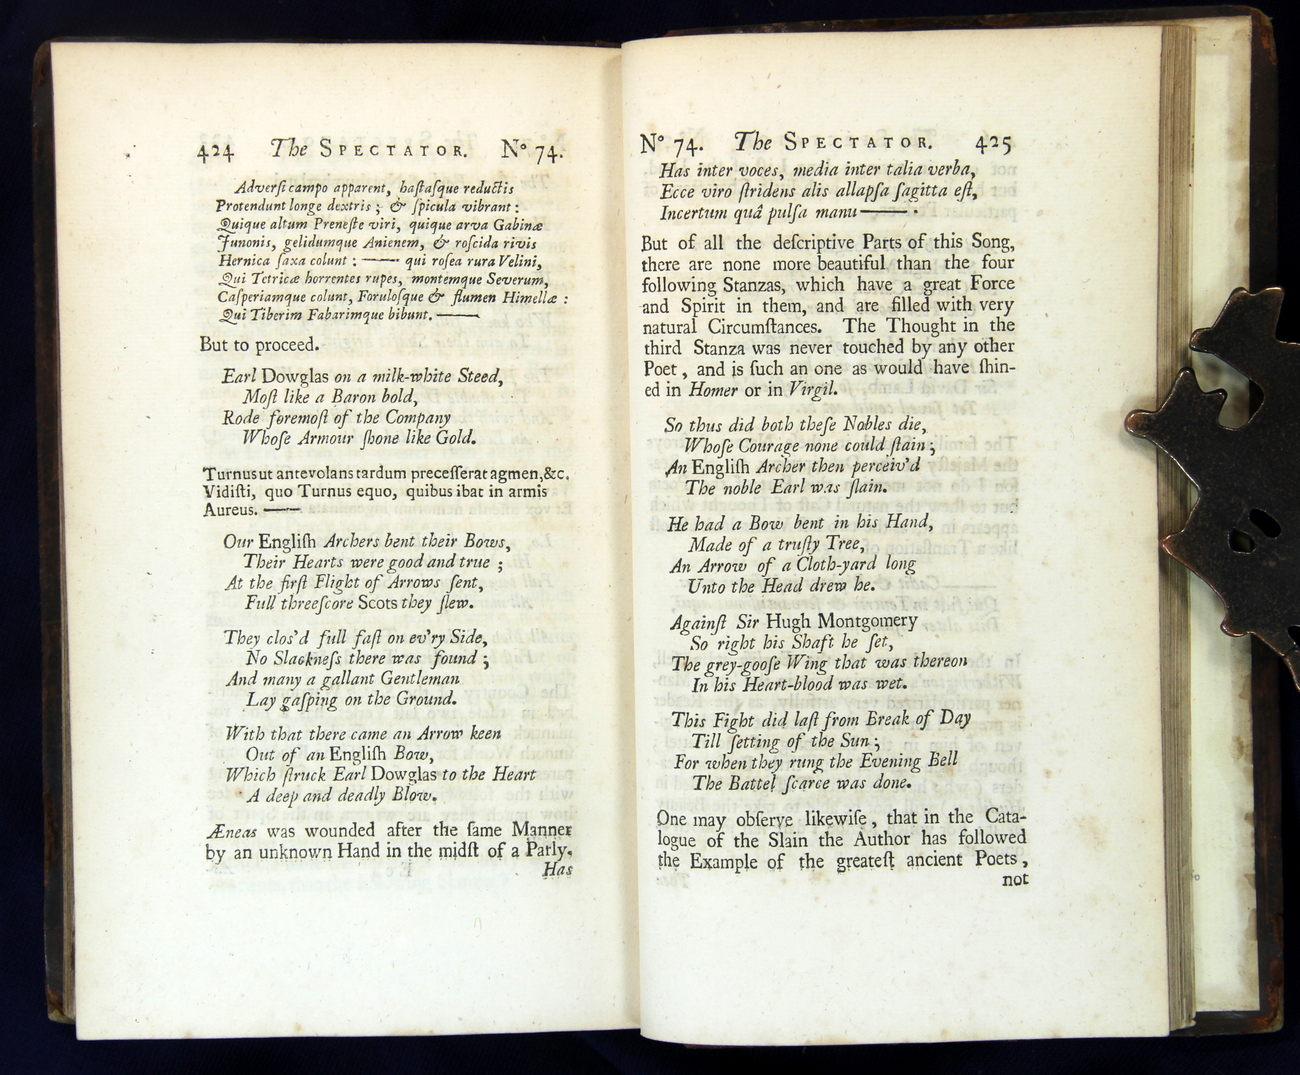 424 The SPECTATOR. No 74.
Adverſi campo apparent, haſtaſque reductis
Protendunt longe dextris; & ſpicula vibrant:
Quique altum Preneſte viri, quique arva Gabinæ
Junonis, gelidumque Anienem, & roſcida rivis
Hernica ſaxa colunt: —— qui roſea rura Velini,
Qui Tetricæ horrentes rupes, montemque Severum,
Caſperiamque colunt, Foruloſque & flumen Himellæ:
Qui Tiberim Fabarimque bibunt. ——
But to proceed.
Earl Dowglas on a milk-white Steed,
Moſt like a Baron bold,
Rode foremoſt of the Company
Whoſe Armour ſhone like Gold.
Turnus ut antevolans tardum preceſſerat agmen, &c.
Vidiſti, quo Turnus equo, quibus ibat in armis
Aureus. ——
Our Engliſh Archers bent their Bows,
Their Hearts were good and true;
At the firſt Flight of Arrows ſent,
Full threeſcore Scots they ſlew.
They clos'd full faſt on ev'ry Side,
No Slackneſs there was found;
And many a gallant Gentleman
Lay gaſping on the Ground.
With that there came an Arrow keen
Out of an Engliſh Bow,
Which ſtruck Earl Dowglas to the Heart
A deep and deadly Blow.
Æneas was wounded after the ſame Manner
by an unknown Hand in the midſt of a Parly.
Has
No 74. The SPECTATOR. 425
Has inter voces, media inter talia verba,
Ecce viro ſtridens alis allapſa ſagitta eſt,
Incertum quâ pulſa manu ——.
But of all the deſcriptive Parts of this Song,
there are none more beautiful than the four
following Stanzas, which have a great Force
and Spirit in them, and are filled with very
natural Circumſtances. The Thought in the
third Stanza was never touched by any other
Poet, and is ſuch an one as would have ſhin-
ed in Homer or in Virgil.
So thus did both theſe Nobles die,
Whoſe Courage none could ſtain;
An Engliſh Archer then perceiv'd
The noble Earl was ſlain.
He had a Bow bent in his Hand,
Made of a truſty Tree,
An Arrow of a Cloth-yard long
Unto the Head drew he.
Againſt Sir Hugh Montgomery
So right his Shaft he ſet,
The grey-gooſe Wing that was thereon
In his Heart-blood was wet.
This Fight did laſt from Break of Day
Till ſetting of the Sun;
For when they rung the Evening Bell
The Battel ſcarce was done.
One may obſerve likewiſe, that in the Cata-
logue of the Slain the Author has followed
the Example of the greateſt ancient Poets,
not